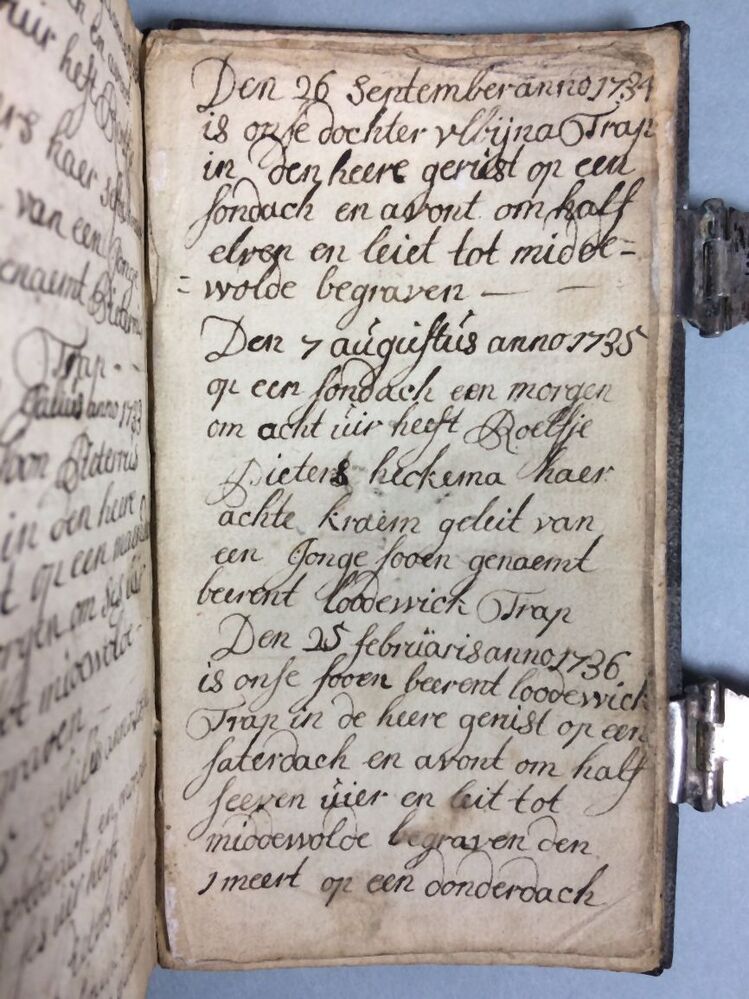 uir heft
ers haer
van een Jonge
genaemt Pieterus
Trap - -
Julius anno 1733
soon Pieterus
in den heere
op een
om ses uir
middewolde
Den 26 September anno 1734
is onse dochter vlbijna Trap
in den heere gerüst op een
sondach en avont om half
elven en leiet tot midde=
=wolde begraven — —
Den 7 augüstüs anno 1735
op een sondach een morgen
om acht üir heeft Roeltje
Pieters heckema haer
achte kraem geleit van
een Jonge sooen genaemt
beerent loodewick Trap
Den 25 febrüaris anno 1736
is onse sooen beerent loodewick
Trap in de heere gerüst op een
saterdach en avont om half
seeven üier en leit tot
middewolde begraven den
1 meert op een donderdach